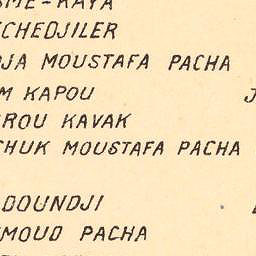 SME-KAYA
CHEDJILER
DJA MOUSTAFA PACHA
M KAPOU
ROU KAVAK
CHUK MOUSTAFA PACHA
DOUNDJI
MOUD PACHA